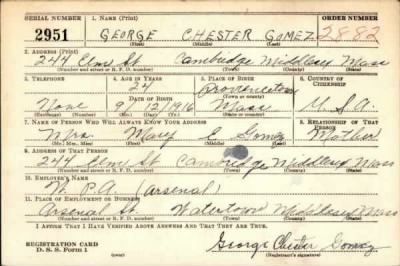 SERIAL NUMBER 1. NAME (Print) ORDER NUMBER
2951 GEORGE CHESTER GOMEZ 2882
(First) (Middle) (Last)
2. ADDRESS (Print)
244 Elm St. Cambridge Middlesex Mass
(Number and street or R. F. D. number) (Town) (County) (State)
3. TELEPHONE 4. AGE IN YEARS 5. PLACE OF BIRTH 6. COUNTRY OF CITIZENSHIP
24 Provincetown
DATE OF BIRTH (Town or county)
None 9 12 1916 Mass U.S.A.
(Exchange) (Number) (Mo.) (Day) (Yr.) (State or country)
7. NAME OF PERSON WHO WILL ALWAYS KNOW YOUR ADDRESS 8. RELATIONSHIP OF THAT PERSON
Mrs Mary E Gomez Mother
(Mr., Mrs., Miss) (First) (Middle) (Last)
9. ADDRESS OF THAT PERSON
244 Elm St Cambridge Middlesex Mass
(Number and street or R. F. D. number) (Town) (County) (State)
10. EMPLOYER'S NAME
W.P.A. (Arsenal)
11. PLACE OF EMPLOYMENT OR BUSINESS
Arsenal St. Watertown Middlesex Mass
(Number and street or R. F. D. number) (Town) (County) (State)
I AFFIRM THAT I HAVE VERIFIED ABOVE ANSWERS AND THAT THEY ARE TRUE.
George Chester Gomez
REGISTRATION CARD
D. S. S. Form 1 (Registrant's signature)